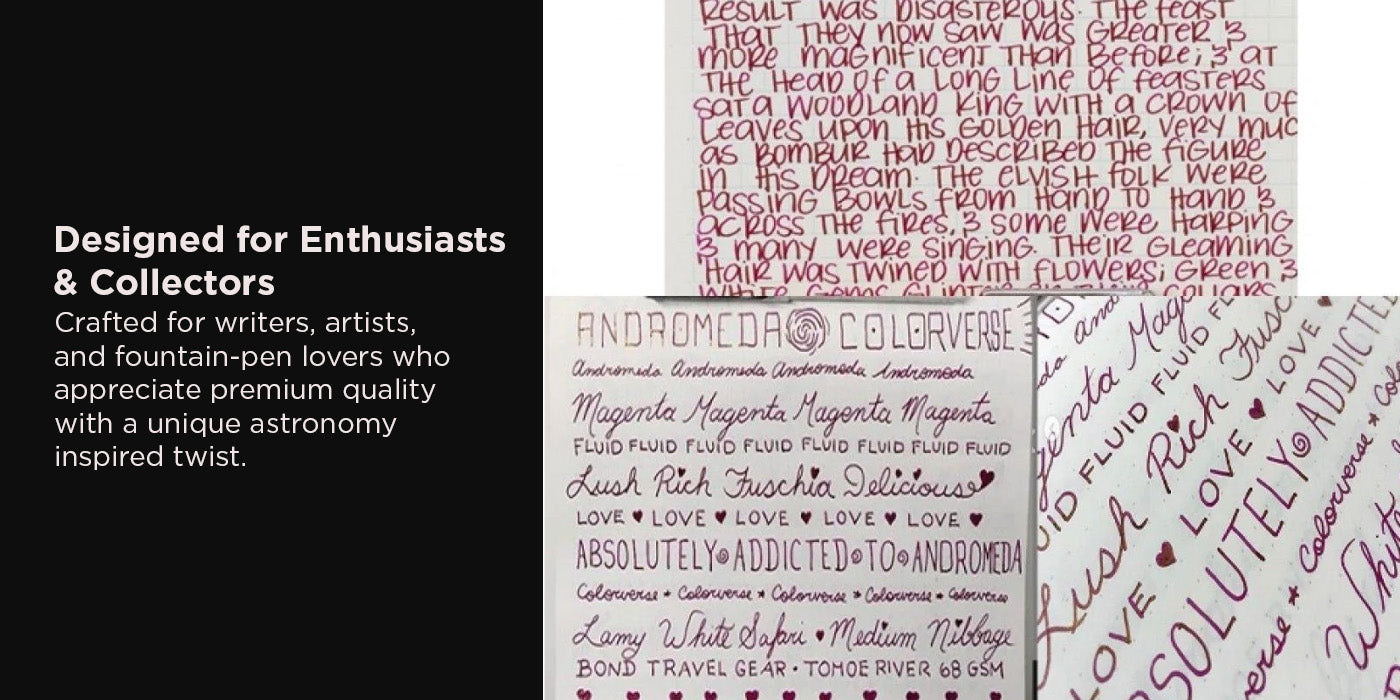 Designed for Enthusiasts
& Collectors
Crafted for writers, artists,
and fountain-pen lovers who
appreciate premium quality
with a unique astronomy
inspired twist.
RESULT WAS DISASTEROUS. THE feast
THAT THEY NOW SAW WAS GREATER &
MORE MAGNIFICENT THAN BEFORE; & AT
THE HEAD OF a LONG LINE OF FEASTERS
SAT a WOODLAND KING WITH a CROWN OF
LEAVES UPON HIS GOLDEN HAIR, VERY MUC
as BOMBUR HAD DESCRIBED THE FIGURE
IN HIS DREAM. THE ELVISH FOLK WERE
PASSING BOWLS FROM HAND TO HAND &
ACROSS THE FIRES, & SOME WERE HARPING
& MANY WERE SINGING. THEIR GLEAMING
HAIR WAS TWINED WITH FLOWERS; GREEN &
WHITE GEMS COLLARS
ANDROMEDA COLORVERSE
Andromeda Andromeda Andromeda Andromeda
Magenta Magenta Magenta Magenta
FLUID FLUID FLUID FLUID FLUID FLUID FLUID FLUID
Lush Rich Fuschia Delicious
LOVE ♥ LOVE ♥ LOVE ♥ LOVE ♥ LOVE ♥
ABSOLUTELY ADDICTED TO ANDROMEDA
Colorverse * Colorverse * Colorverse * Colorverse * Colorverse
Lamy White Safari • Medium Nibbage
BOND TRAVEL GEAR • TOMOE RIVER 68 GSM
da and
genta Mag
UID FLUID FLUID FL
Lush Rich Fusc
LOVE ♥ LOVE ♥ LOVE
SOLUTELY ADDICTE
erse * Colorverse * Colo
Whit